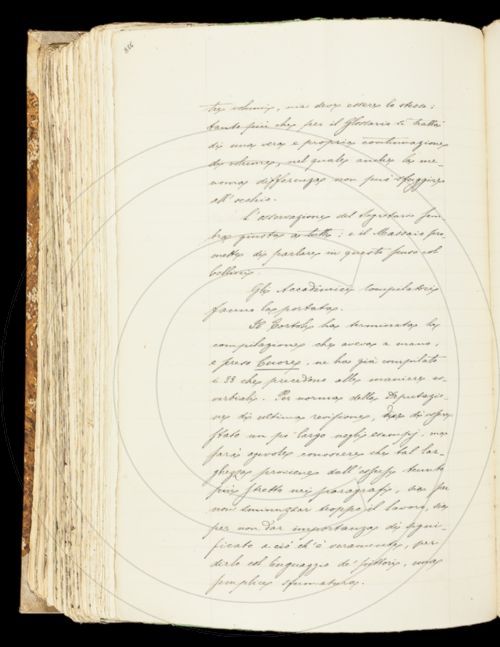 816
tre volumi, ma deve essere lo stesso;
tanto più che per il Glossario si tratta
di una vera e propria continuazione
di volume, nel quale anche la me-
noma differenza non può sfuggire
all'occhio.
L'osservazione del Segretario sem-
bra giusta a tutti; e il Massaio pro-
mette di parlare in questo senso col
Cellini.
Gli Accademici Compilatori
fanno la portata.
Il Tortoli ha terminata la
compilazione che aveva a mano,
e preso Cuore, ne ha già compilati
i §§ che precedono alle maniere av-
verbiali. Per norma della Deputazio-
ne di ultima revisione, dice di essere
stato un po' largo negli esempj, ma
sarà agevole conoscere che tal lar-
ghezza proviene dall'essersi tenuto
più stretto nei paragrafi, sia per
non sminuzzar troppo il lavoro, sia
per non dar importanza di signi-
ficato a ciò ch'è veramente, per
dirlo col linguaggio de' pittori, una
semplice sfumatura.